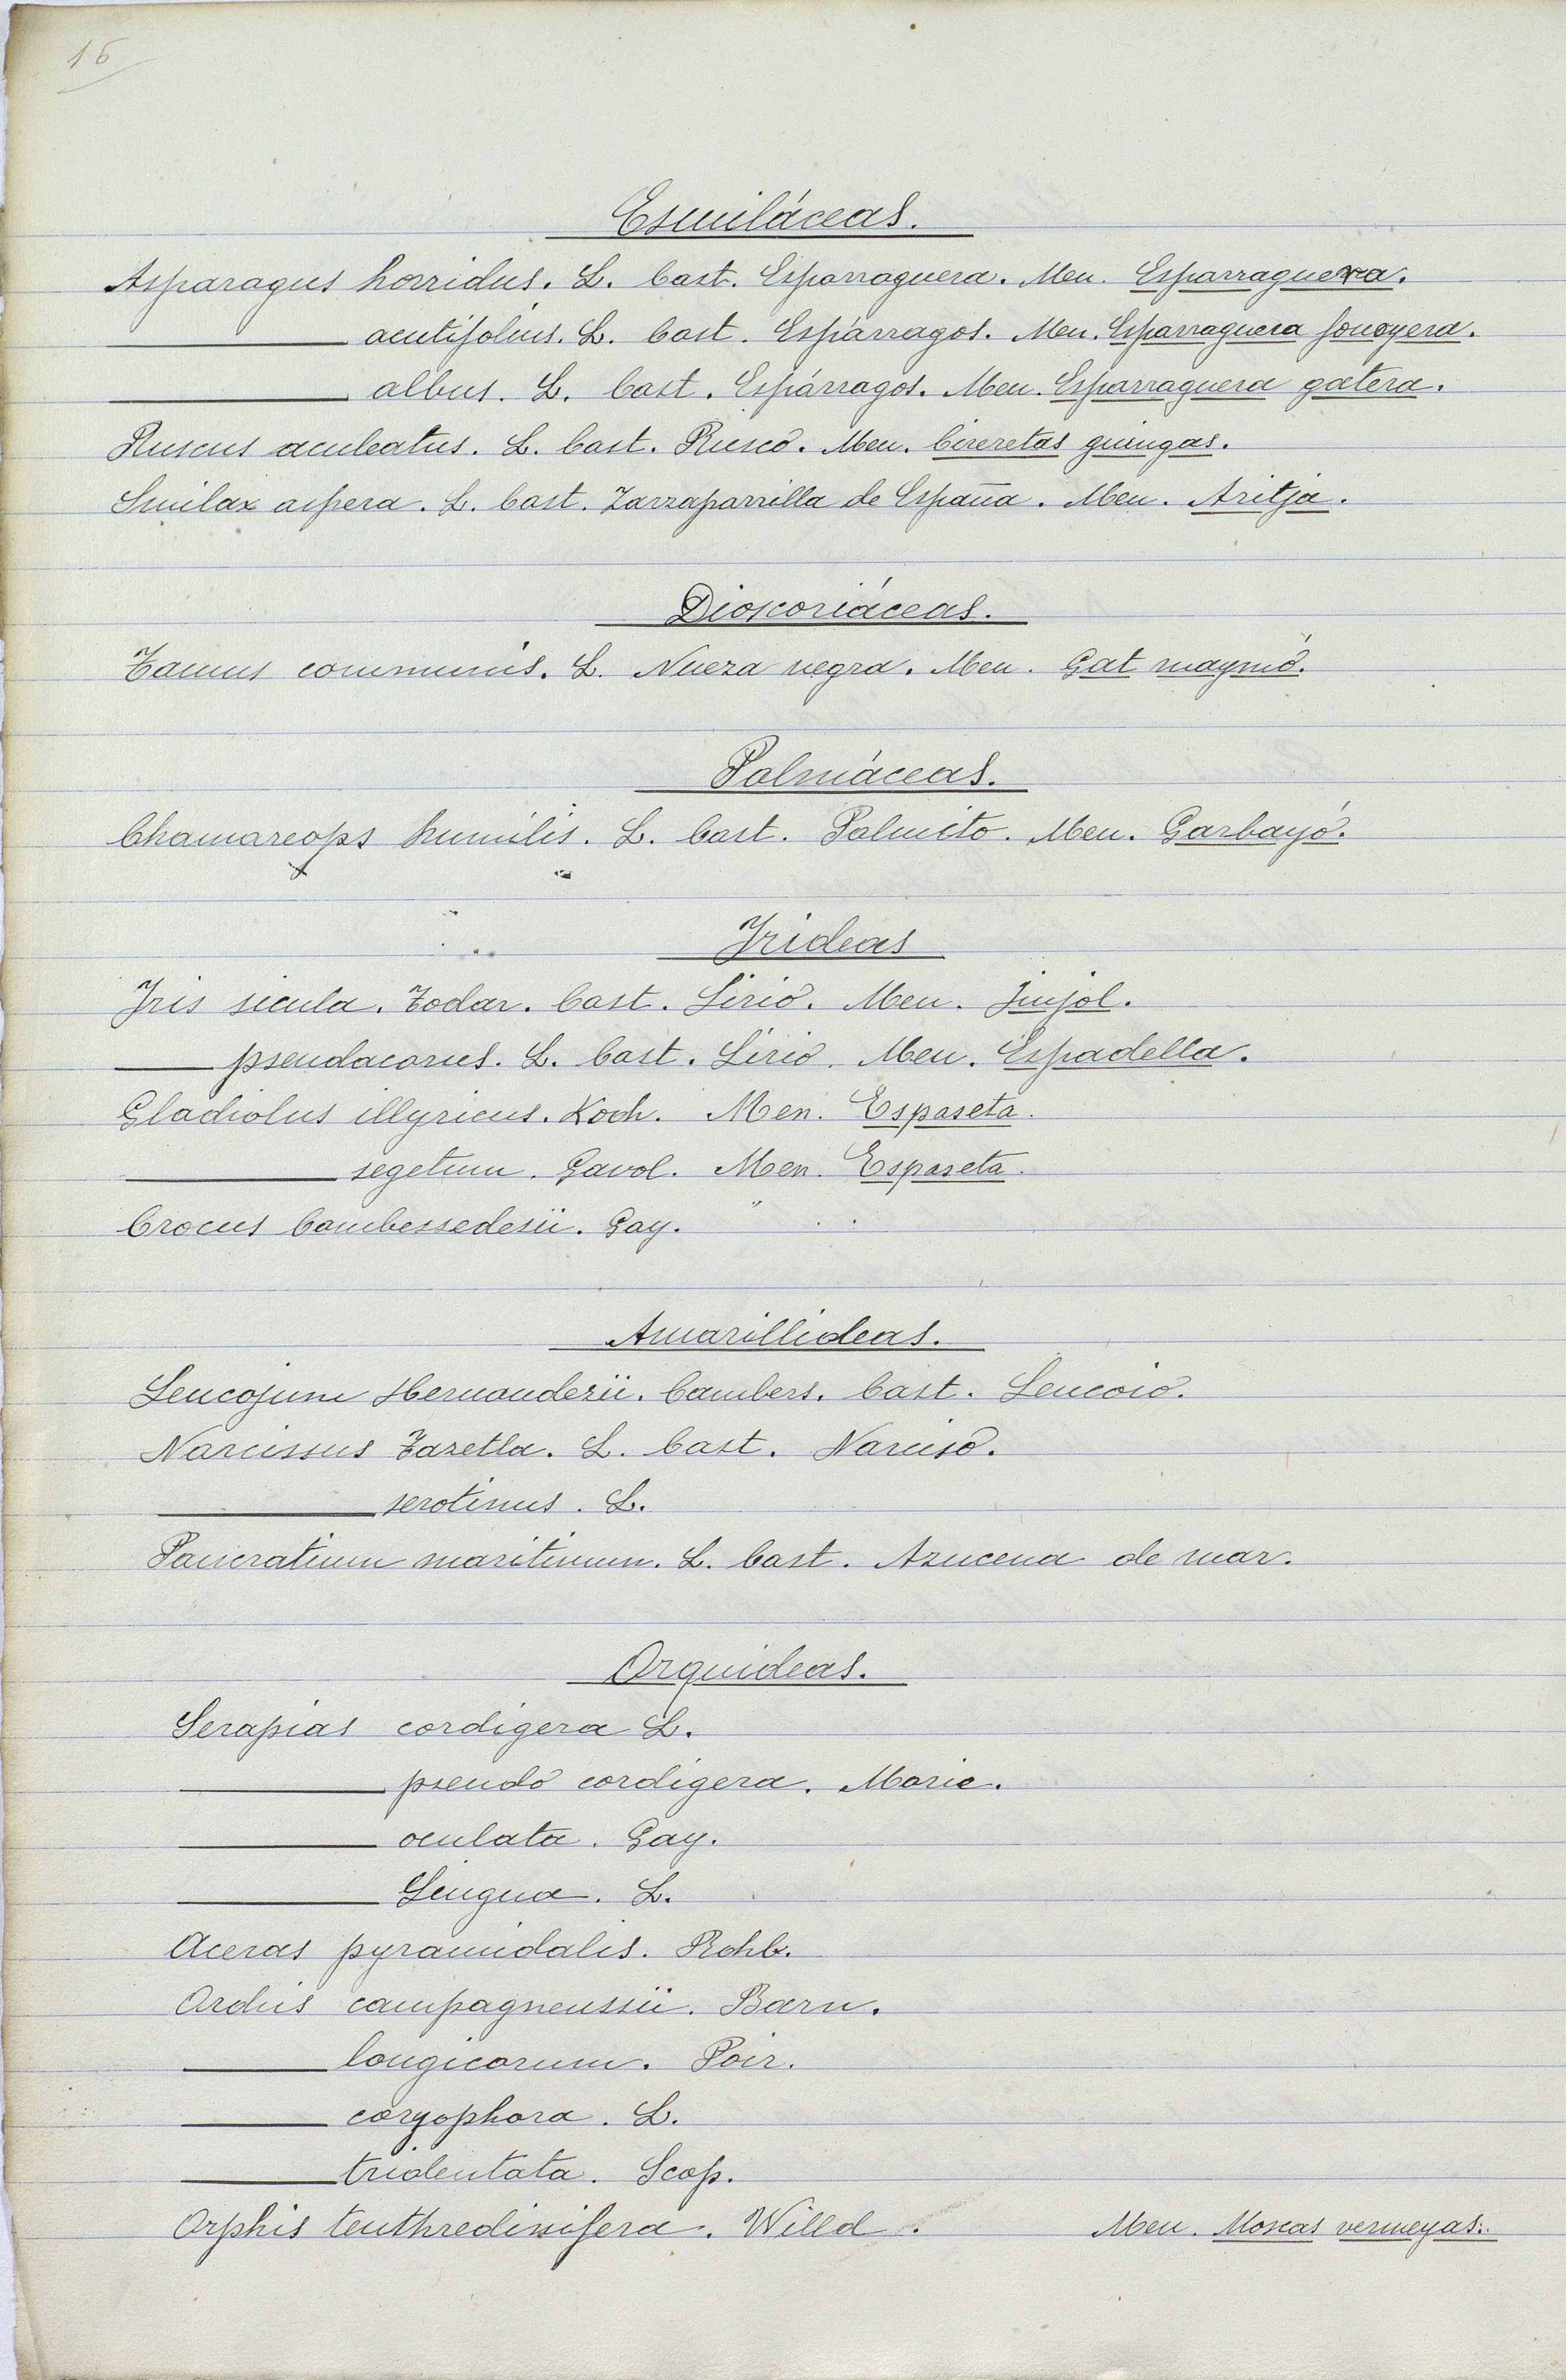 16
Esmiláceas.
Asparagus horridus. L. Cast. Esparraguera. Men. Esparraguera.
——— acutifolius. L. Cast. Espárragos. Men. Esparraguera fonoyera.
——— albus. L. Cast. Espárragos. Men. Esparraguera gatera.
Ruscus aculeatus. L. Cast. Rusco. Men. Cireretas guingas.
Smilax aspera. L. Cast. Zarzaparrilla de España. Men. Aritja.
Dioscoriáceas.
Tamus communis. L. Nueza negra. Men. Gat maymó.
Palmáceas.
Chamareops humilis. L. Cast. Palmito. Men. Garbayó.
Irideas
Iris sicula. Todar. Cast. Lirio. Men. Jinjol.
——— pseudacorus. L. Cast. Lirio. Men. Espadella.
Gladiolus illyricus. Koch. Men. Espaseta.
——— segetum. Gavol. Men. Espaseta.
Crocus Cambessedesii. Gay.
Amarillideas.
Leucojum Hernandezii. Cambers. Cast. Leucoio.
Narcissus Tazetta. L. Cast. Narciso.
——— serotinus. L.
Pancratium maritimum. L. Cast. Azucena de mar.
Orquideas.
Serapias cordigera L.
——— pseudo cordigera. Moric.
——— oculata. Gay.
——— Lingua. L.
Aceras pyramidalis. Rchb.
Orchis campagneussii. Barn.
——— longicornum. Poir.
——— coryophora. L.
——— tridentata. Scop.
Orphis tenthredinifera. Willd. Men. Moscas vermeyas.